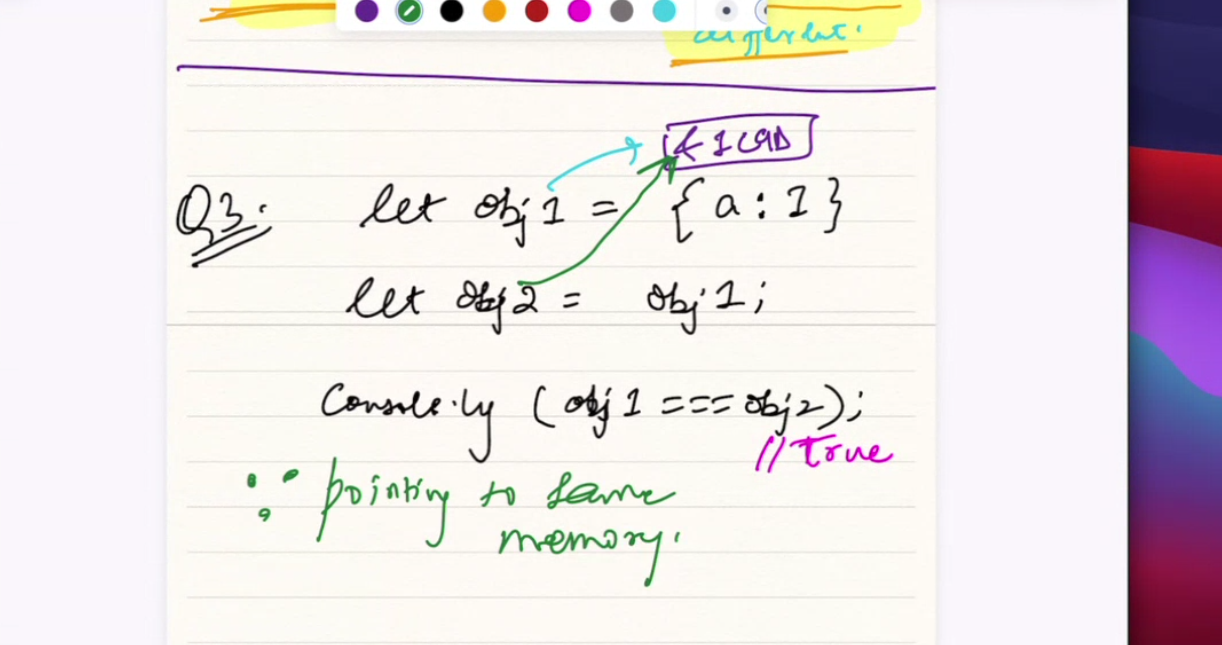 different.
Q3. let obj1 = {a:1}
let obj2 = obj1;
Console.log (obj1 === obj2);
//True
∵ pointing to same
memory.